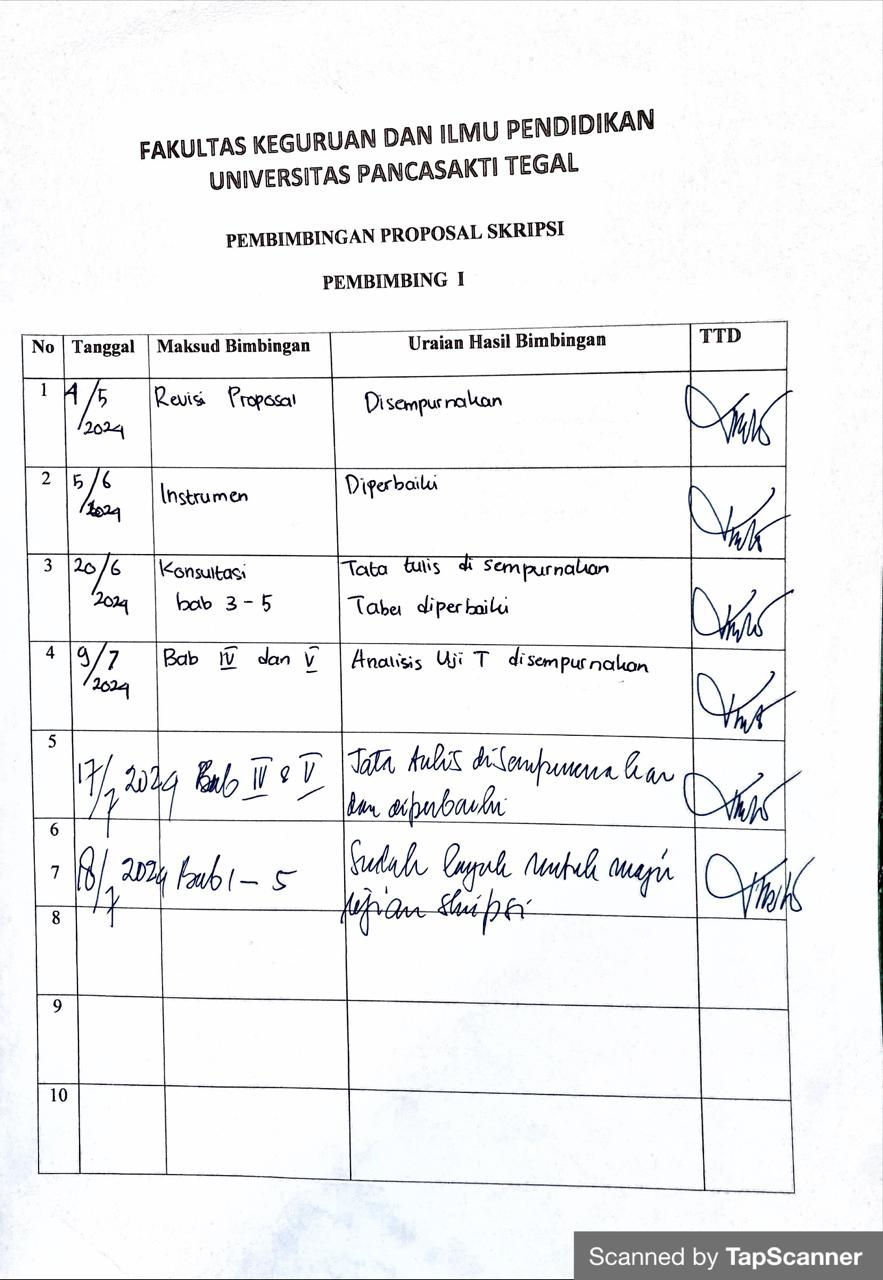 FAKULTAS KEGURUAN DAN ILMU PENDIDIKAN
UNIVERSITAS PANCASAKTI TEGAL
PEMBIMBINGAN PROPOSAL SKRIPSI
PEMBIMBING I
No Tanggal Maksud Bimbingan Uraian Hasil Bimbingan TTD
1 4/5 Revisi Proposal Disempurnakan
/2024
2 5/6 Instrumen Diperbaiki
/2024
3 20/6 Konsultasi Tata tulis di sempurnakan
/2024 bab 3 - 5 Tabel diperbaiki
4 9/7 Bab IV dan V Analisis Uji T disempurnakan
/2024
5
17/7 2024 Bab IV & V Tata tulis disempurnakan
dan diperbaiki
6
7 18/7 2024 Bab 1 - 5 Sudah layak untuk maju
ujian skripsi
8
9
10
Scanned by TapScanner